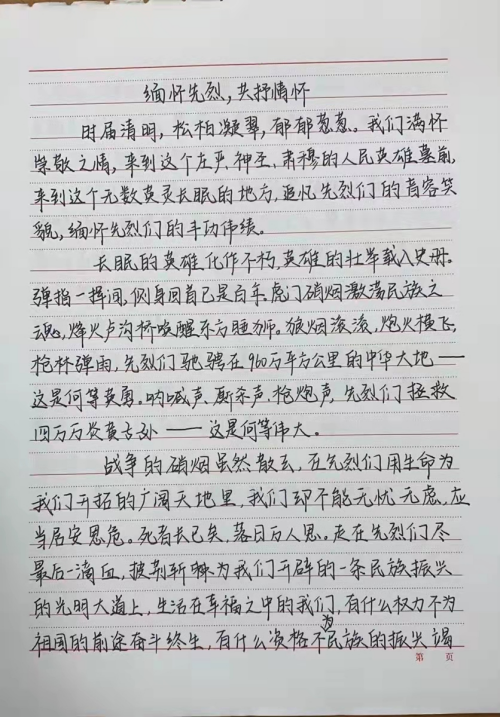 缅怀先烈,共抒情怀
时届清明,松柏凝翠,郁郁葱葱。我们满怀
崇敬之情,来到这个庄严、神圣、肃穆的人民英雄墓前,
来到这个无数英灵长眠的地方,追忆先烈们的音容笑
貌,缅怀先烈们的丰功伟绩。
长眠的英雄化作不朽,英雄的壮举载入史册。
弹指一挥间,侧身回首已是百年。虎门硝烟激荡民族之
魂,烽火卢沟桥唤醒东方睡狮。狼烟滚滚,炮火横飞,
枪林弹雨,先烈们驰骋在960万平方公里的中华大地——
这是何等英勇。呐喊声、厮杀声、枪炮声,先烈们拯救
四万万炎黄子孙——这是何等伟大。
战争的硝烟虽然散去,在先烈们用生命为
我们开拓的广阔天地里,我们却不能无忧无虑,应
当居安思危。死者长已矣,落日万人思。走在先烈们尽
最后一滴血,披荆斩棘为我们开辟的一条民族振兴
的光明大道上,生活在幸福之中的我们,有什么权力不为
祖国的前途奋斗终生,有什么资格不为民族的振兴竭
第 页